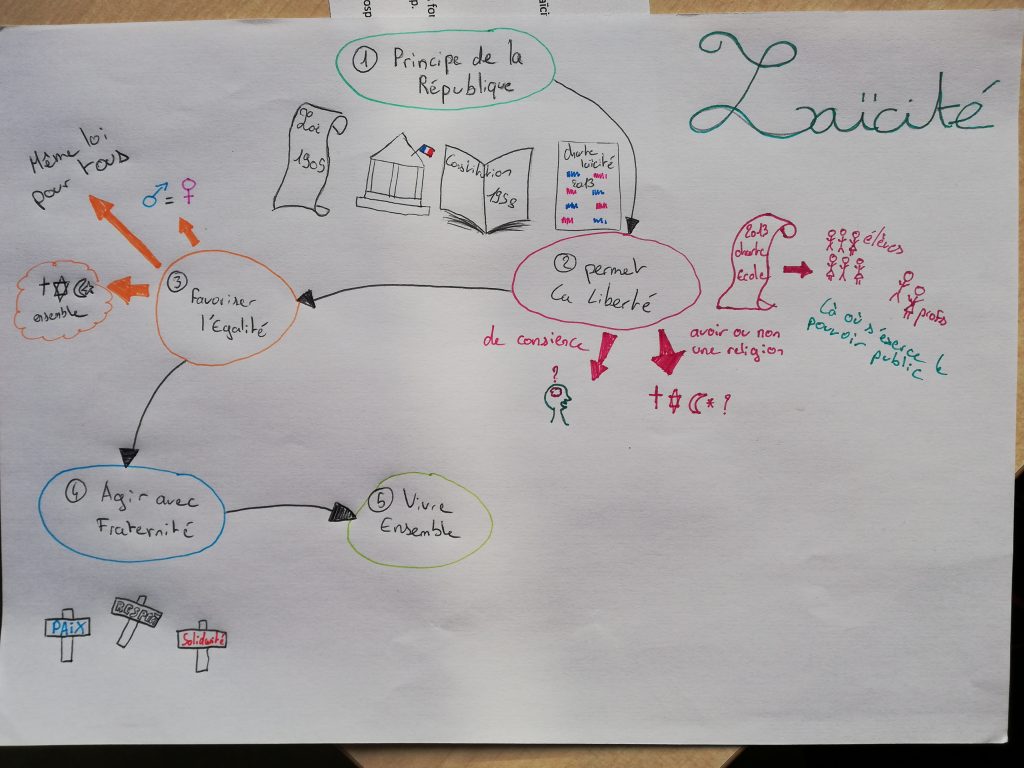 Laïcité
① Principe de la
République
Loi
1905
Constitution
1958
charte
laïcité
2013
② permet
La Liberté
2013
charte
école
élèves
profs
Là où s'exerce le
pouvoir public
de consience
?
avoir ou non
une religion
?
③ Favoriser
l'Egalité
Même loi
pour tous
=
ensemble
④ Agir avec
Fraternité
PAIX
RESPEC
Solidarité
⑤ Vivre
Ensemble